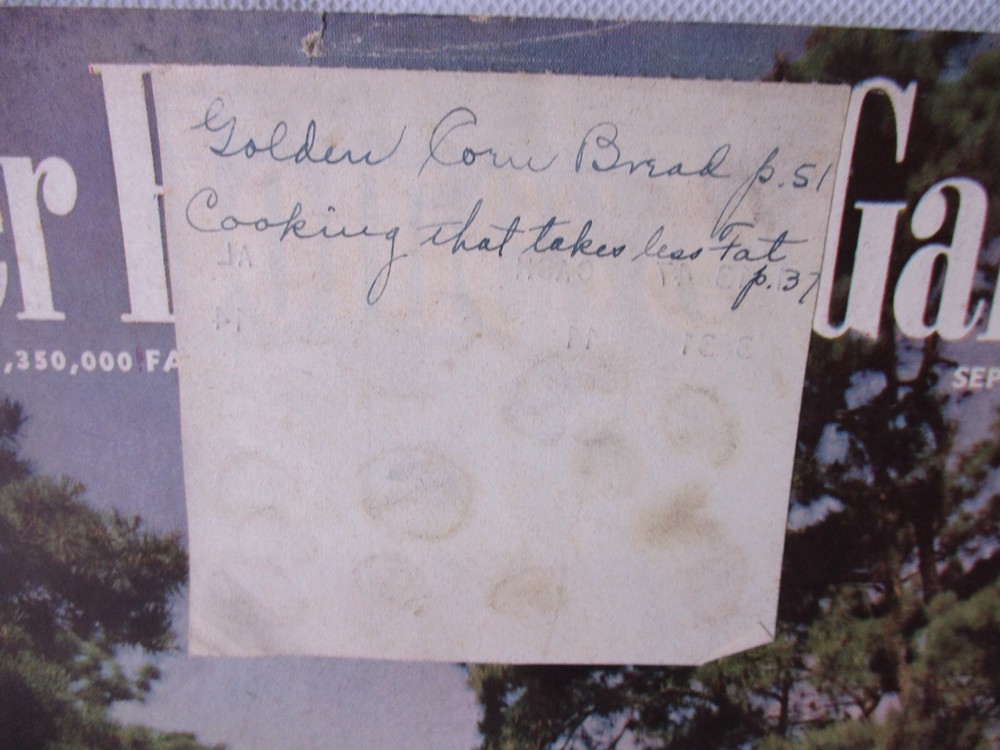 er H Gar
,350,000 FA
SEP
Golden Corn Bread p.51
Cooking that takes less Fat
p.37